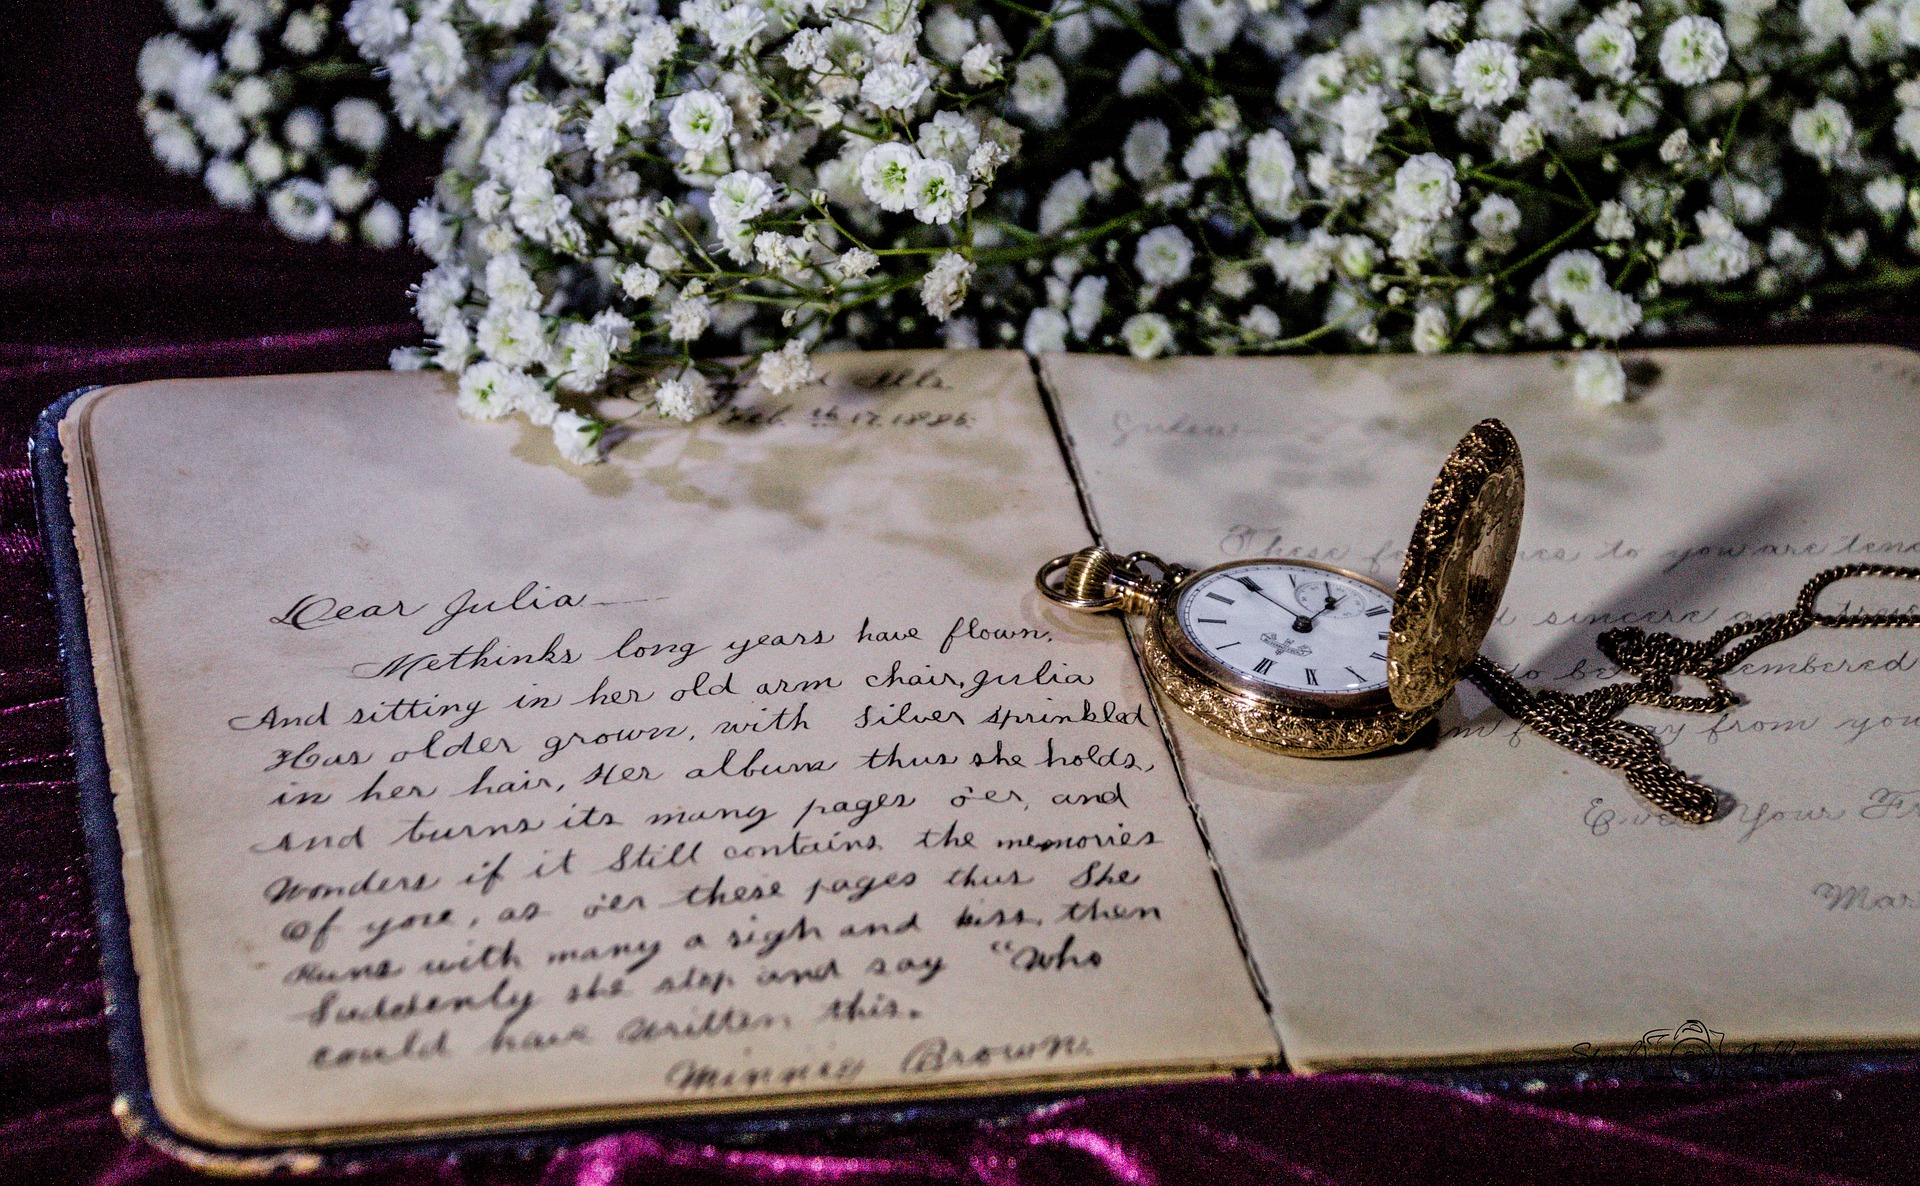 Ills.
Feb. th 17. 1886.
Dear Julia
Methinks long years have flown,
And sitting in her old arm chair, Julia
Has older grown, with Silver sprinkled
in her hair, Her album thus she holds,
And turns its many pages o'er, and
Wonders if it Still contains the memories
Of yore, as o'er these pages thus She
Runs with many a sigh and kiss, then
Suddenly she stop and say "Who
could have written this.
Minnie Brown
These to you are
sincere
to be
from you
Ever Your